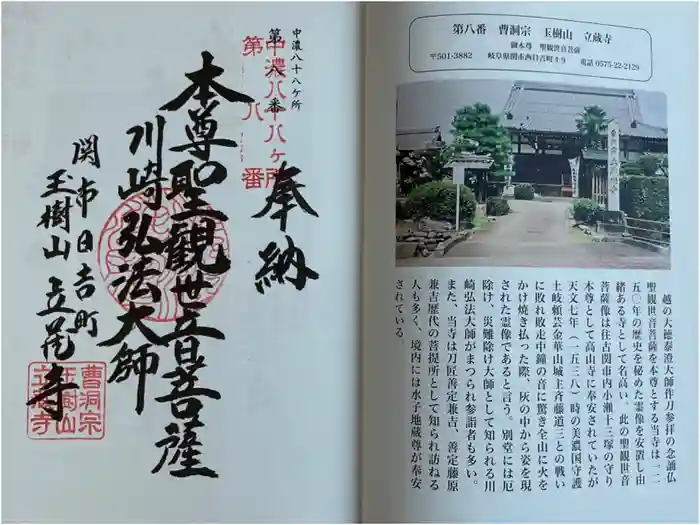 中濃八十八ヶ所
第八番
中濃八十八ヶ所
第八番
奉納
本尊聖観世音菩薩
川崎弘法大師
関市日吉町
玉樹山立蔵寺
曹洞宗
玉樹山
立蔵寺
第八番 曹洞宗 玉樹山 立蔵寺
御本尊 聖観世音菩薩
〒501-3882 岐阜県関市西日吉町49 電話 0575-22-2129
越の大徳泰澄大師作刀参拝の念誦仏
聖観世音菩薩を本尊とする当寺は一二
五〇年の歴史を秘めた霊像を安置し由
緒ある寺として名高い。此の聖観世音
菩薩像は往古関市内小瀬十三塚の守り
本尊として高山寺に奉安されていたが
天文七年(一五三八)時の美濃国守護
土岐頼芸金華山城主斉藤道三との戦い
に敗れ敗走中鐘の音に驚き全山に火を
かけ焼き払った際、灰の中から姿を現
された霊像であると言う。別堂には厄
除け、災難除け大師として知られる川
崎弘法大師がまつられ参詣者も多い。
また、当寺は刀匠善定兼吉、善定藤原
兼吉歴代の菩提所として知られ訪ねる
人も多く、境内には水子地蔵尊が奉安
されている。